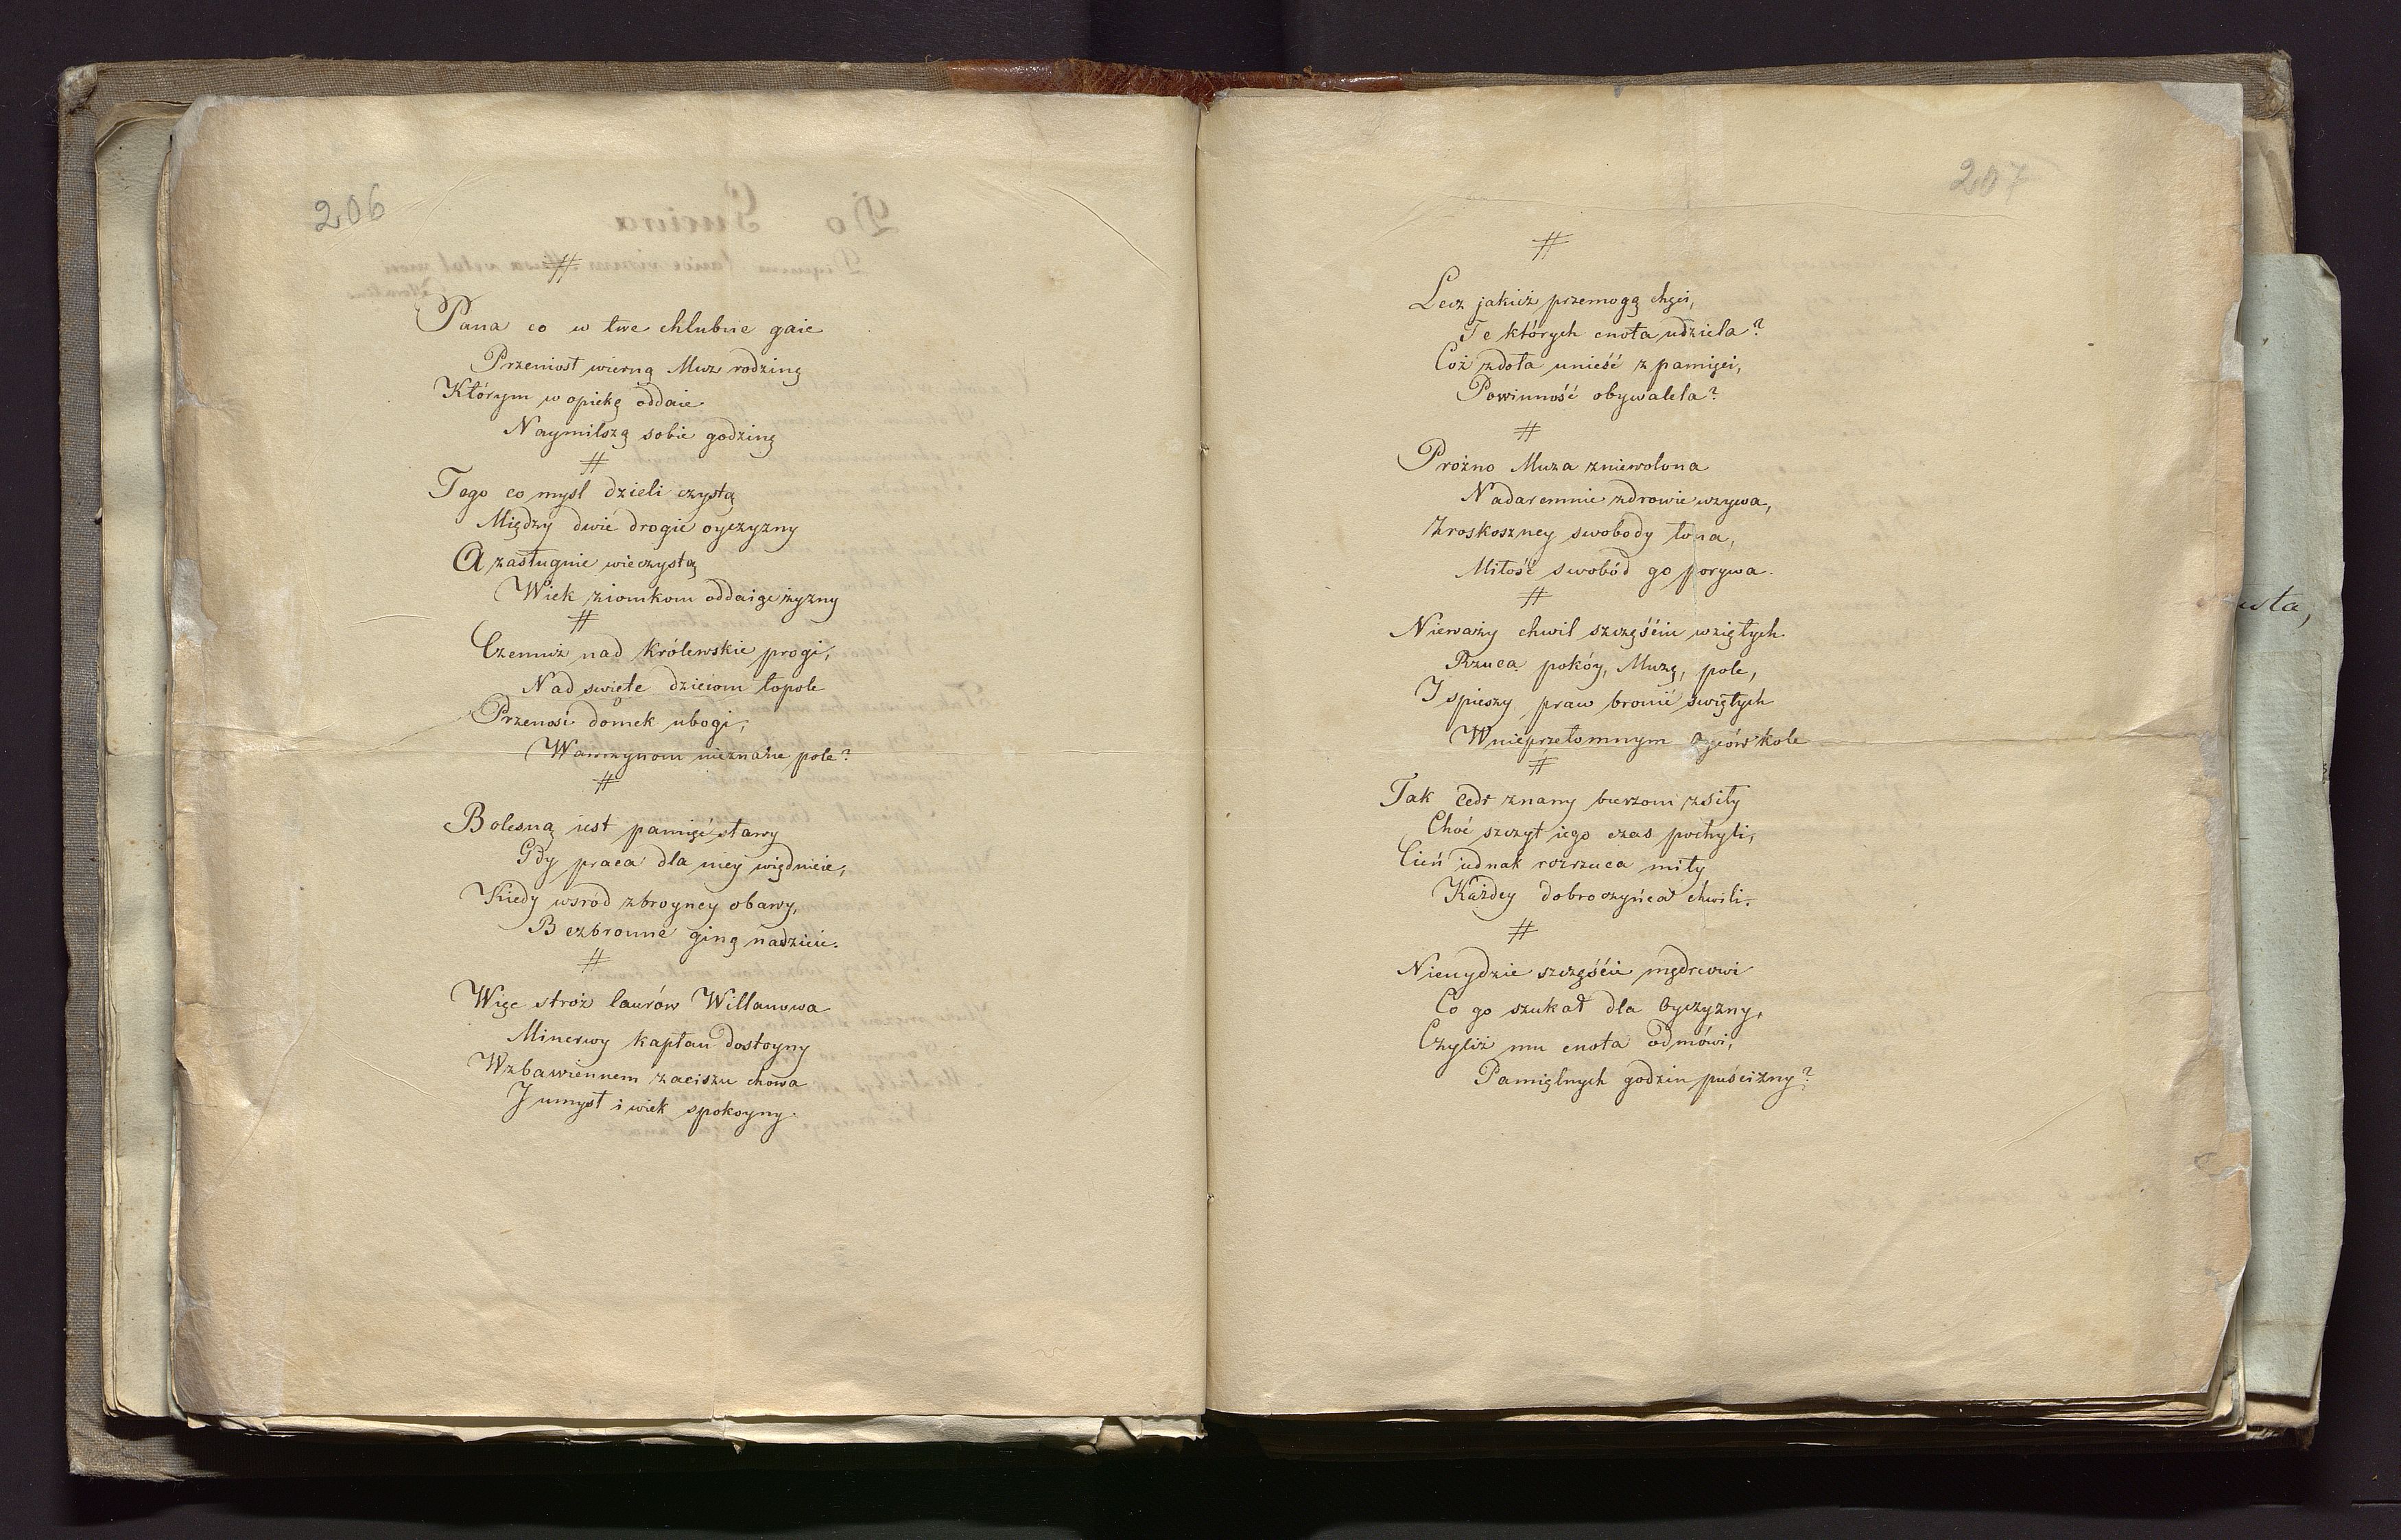 206
#
Pana co w twe chlubne gaie
Przeniosł wierną Muz rodzinę
Którym w opiekę oddaie
Naymilszą sobie godzinę
#
Tego co mysl dzieli czystą
Między dwie drogie oyczyzny
A zasługnie wieczystą
Wiek ziomkom oddaige żyzny
#
Czemuż nad Królewskie progi,
Nad swięte dzieiom topole
Przenosi domek ubogi,
Wawrzynom nieznane pole?
#
Bolesną iest pamięć sławy
Gdy praca dla niey więdnieie,
Kiedy wsród zbroyney obawy,
Bezbronne giną nadzieie.
#
Więc stróż laurów Willanowa
Minerwy kapłan dostoyny
Wzbawiennem zaciszu chowa
I umysł i wiek spokoyny.
207
#
Lecz jakież przemogą chęci,
Te których cnota udziela?
Coż zdoła unieść z pamięci,
Powinność obywatela?
#
Prożno Muza zniewolona
Nadaremnie zdrowie wzywa,
Zroskoszney swobody łona,
Miłość swobód go porywa.
#
Nieważy chwil szczęściu wziętych
Rzuca pokóy, Muzę, pole,
I spieszy praw bronić swiętych
Wnieprzełomnym Oyców kole
#
Tak Cedr znany burzom zsiły
Choć szczyt iego czas pochyli,
Cień iednak rozrzuca miły
Każdey dobroczyńca chwili.
#
Nieuydzie szczęście mędrcowi
Co go szukał dla Oyczyzny,
Czyliż mu cnota odmówi,
Pamiętnych godzin puścizny?